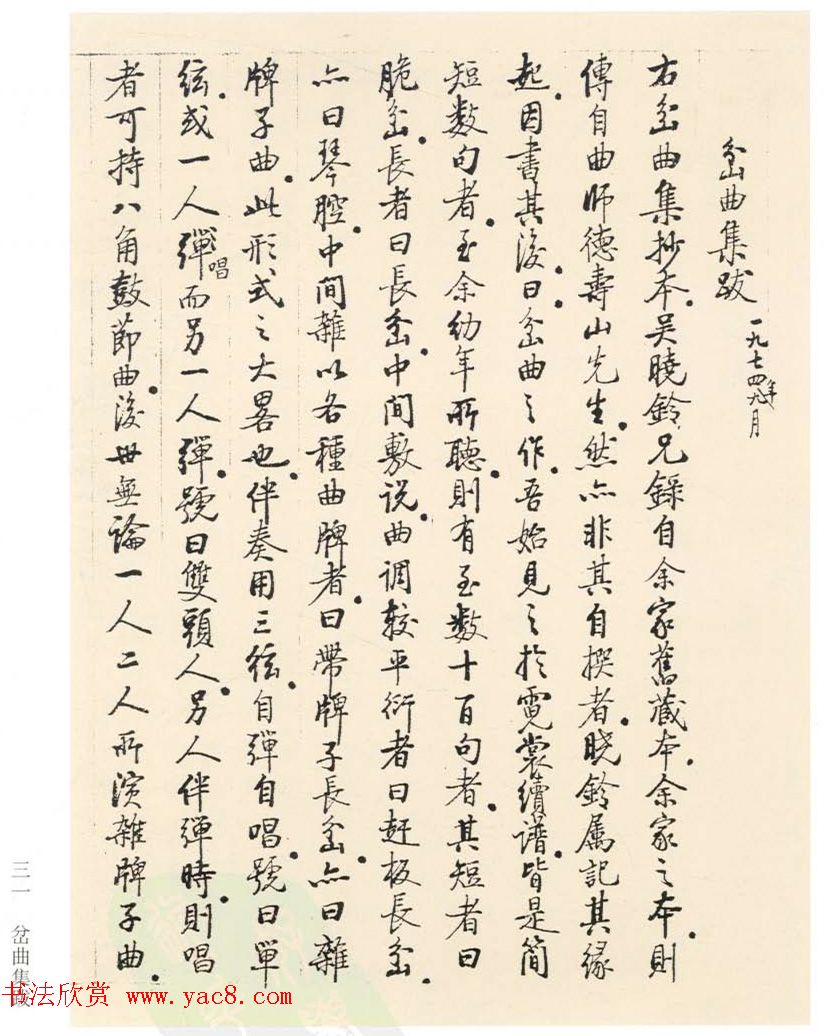 岔曲集跋 一九七四年九月
右岔曲集抄本。吴曉鈴兄錄自余家舊藏本。余家之本。則
傳自曲師德壽山先生。然亦非其自撰者。晓鈴属記其緣
起。因書其後。曰。岔曲之作。吾始見之於霓裳續譜。皆是簡
短數句者。至余幼年所聽。則有至數十百句者。其短者曰
脆岔。長者曰長岔。中間敷说。曲调較平衍者曰赶板長岔。
亦曰琴腔。中間雜以各種曲牌者。曰帶牌子長岔。亦曰雜
牌子曲。此形式之大畧也。伴奏用三弦。自弹自唱。號曰單
弦。或一人彈唱而另一人弹。號曰雙頭人。另人伴弹時。則唱
者可持八角鼓節曲。後世無論一人二人所演雜牌子曲。
三一 岔曲集跋
书法欣赏 www.yac8.com